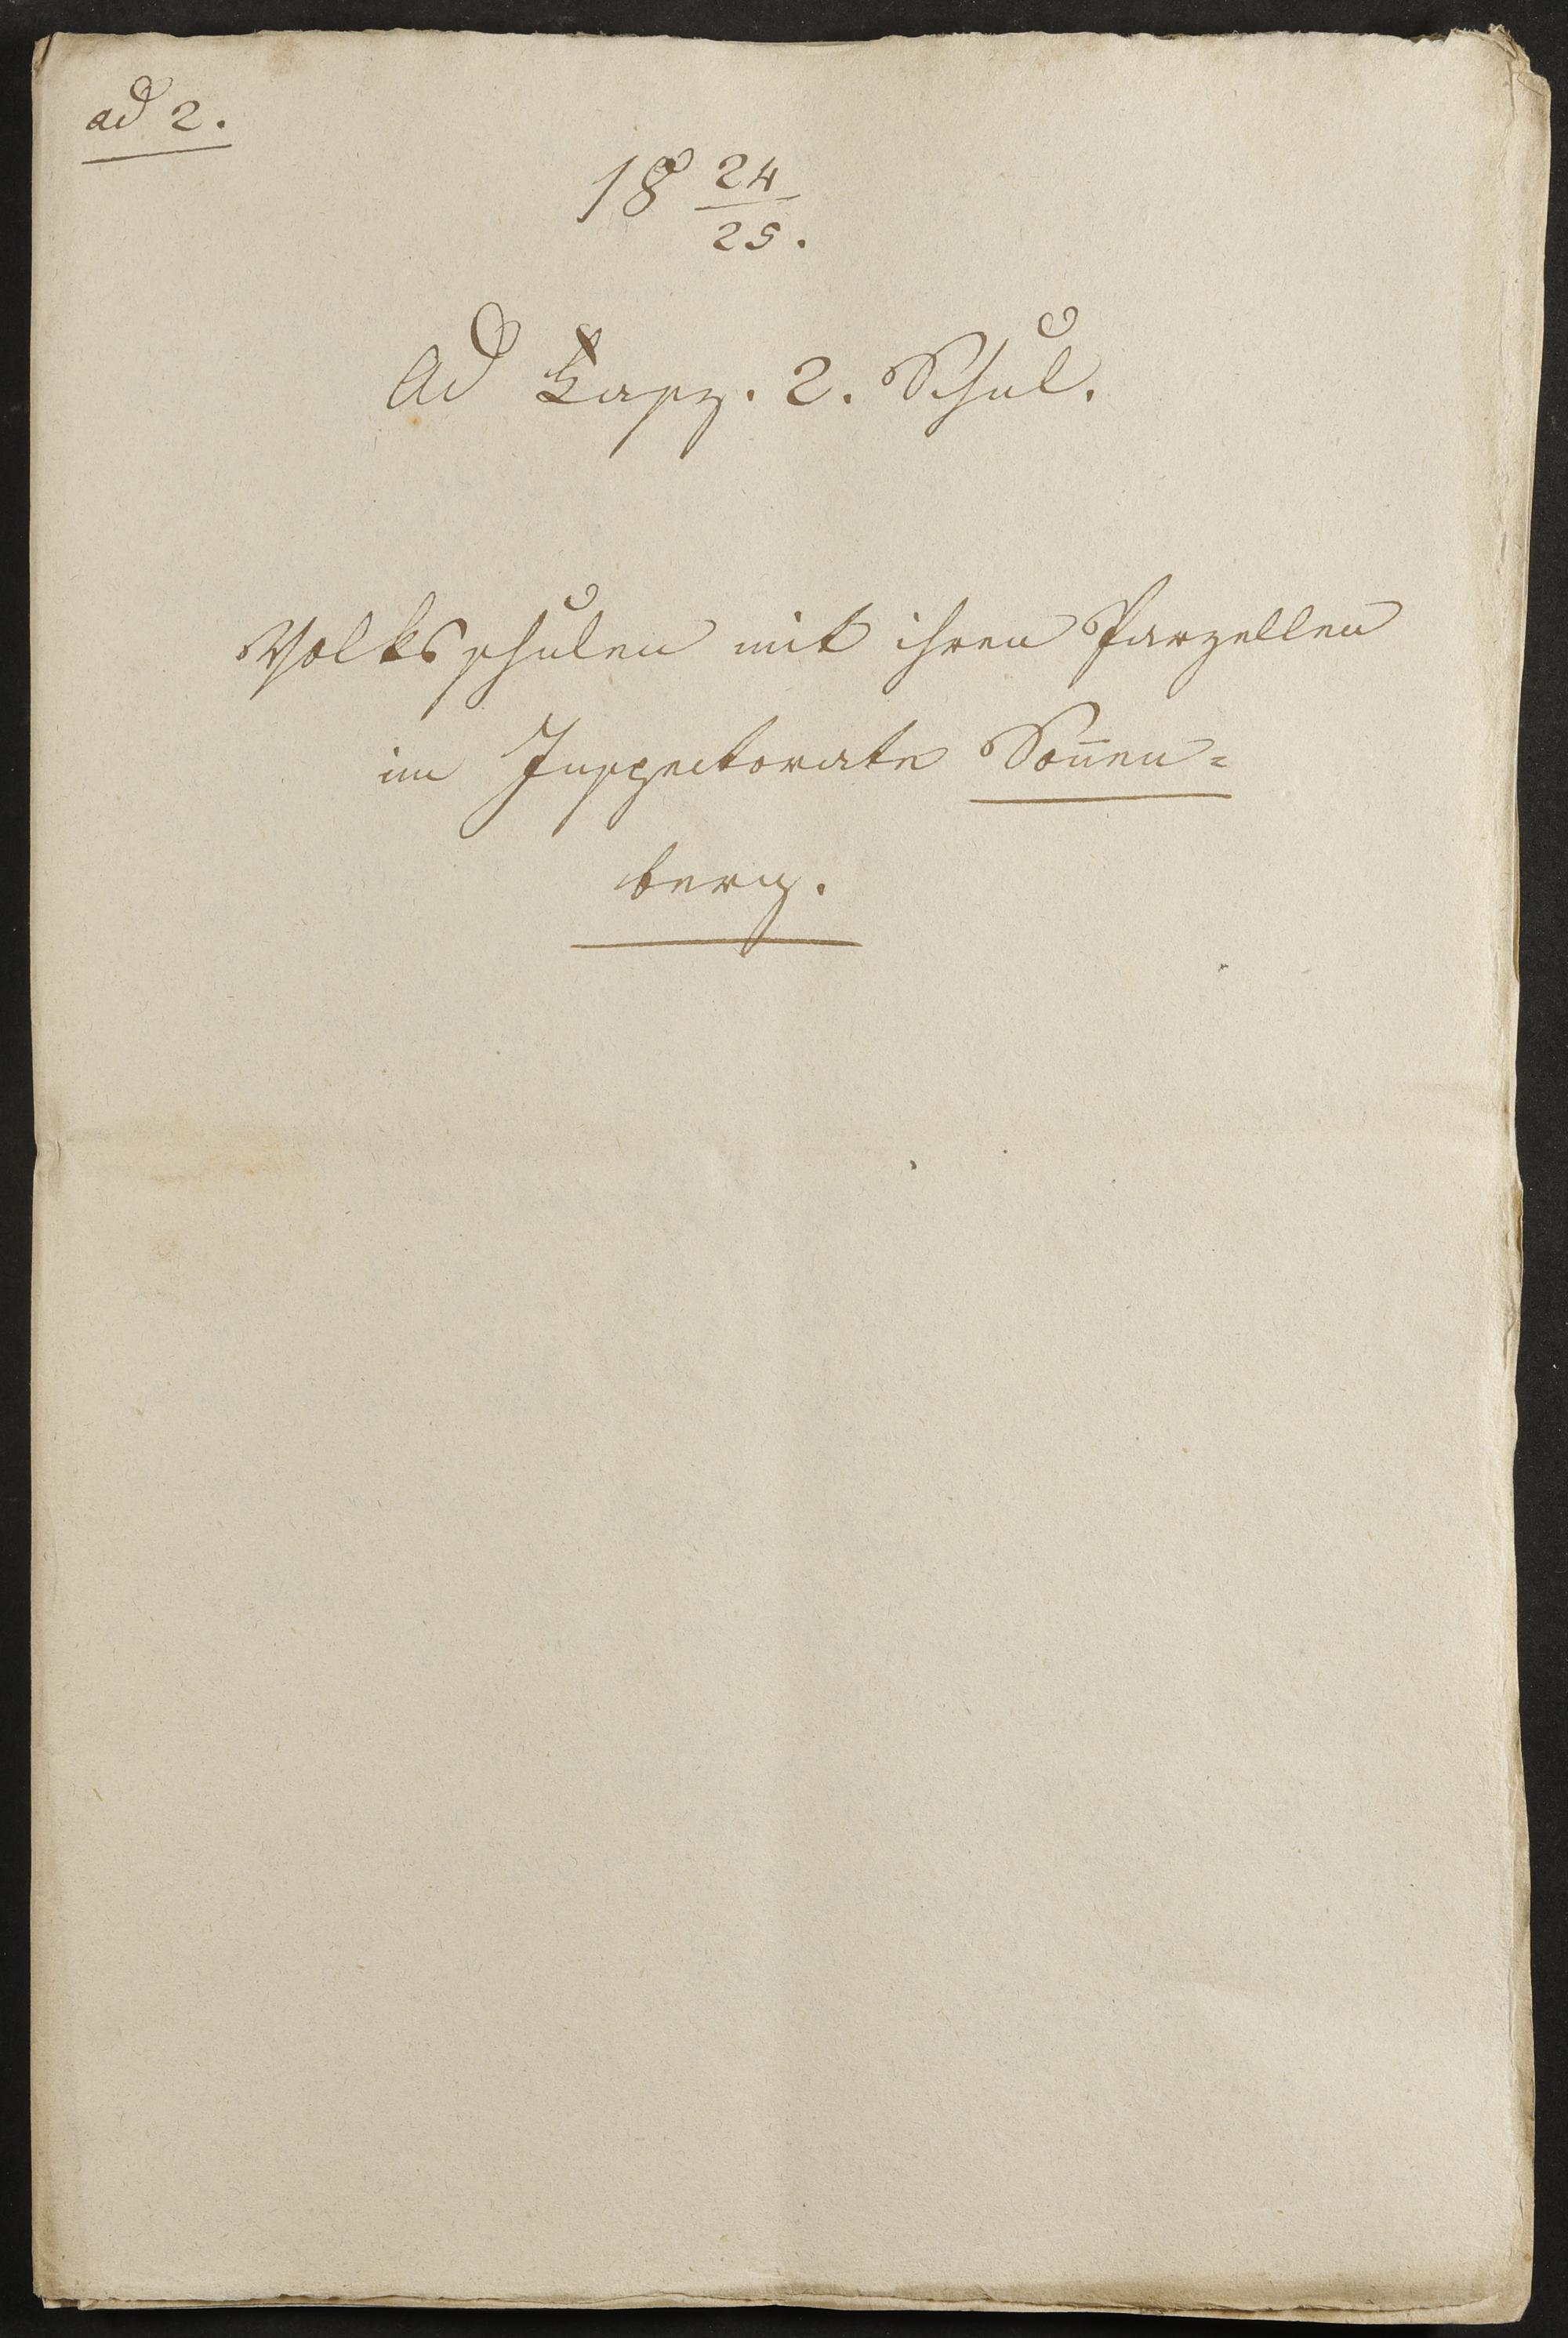 ad 2.
18 24/25.
Ad Fasz. 2. Schul.
Volksschulen mit ihren Parzellen
im Inspectorate Soñen=
berg.